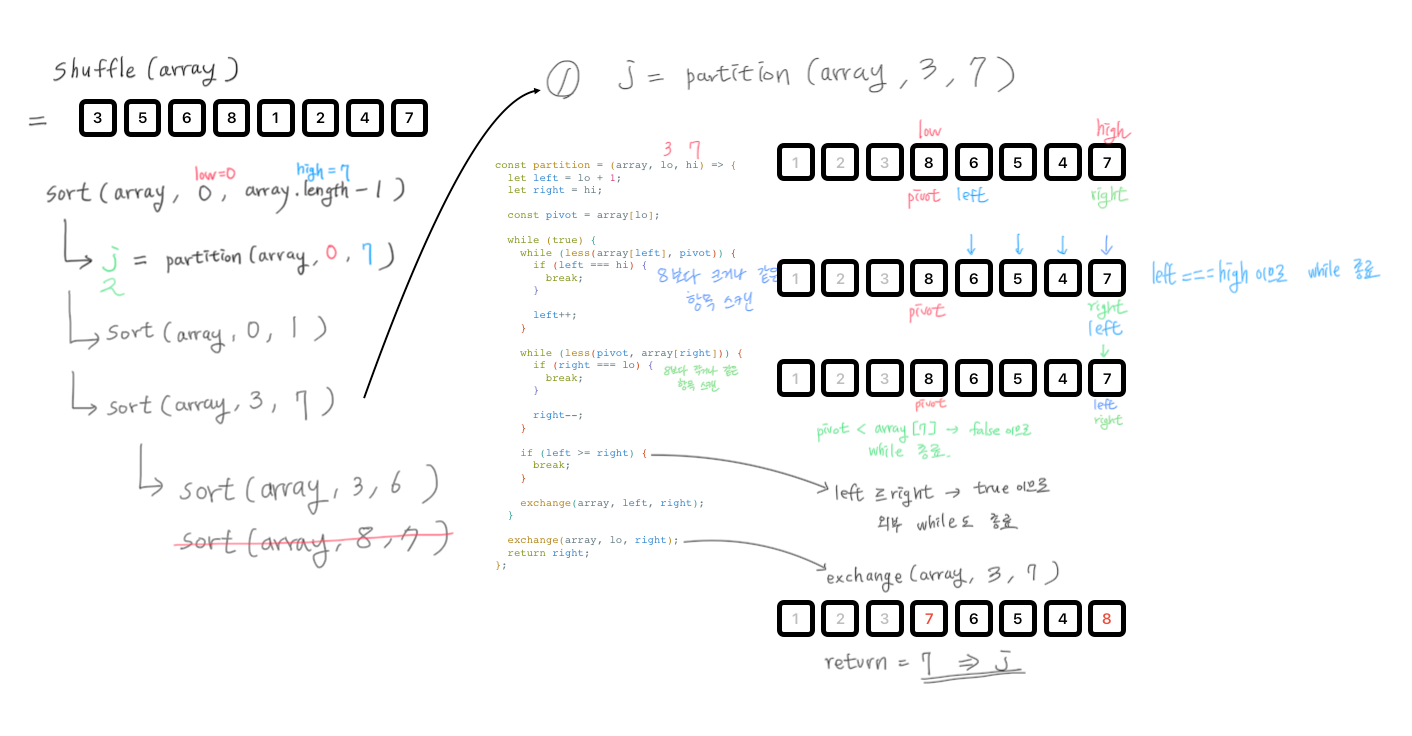 shuffle (array)
= 3 5 6 8 1 2 4 7
low=0 high = 7
sort (array, 0, array.length - 1)
j = partition (array, 0, 7)
2
sort (array, 0, 1)
sort (array, 3, 7)
sort (array, 3, 6)
sort (array, 8, 7)
① j = partition (array, 3, 7)
3 7
const partition = (array, lo, hi) => {
let left = lo + 1;
let right = hi;
const pivot = array[lo];
while (true) {
while (less(array[left], pivot)) {
if (left === hi) {
break;
}
left++;
}
8보다 크거나 같은
항목 스캔
while (less(pivot, array[right])) {
if (right === lo) {
break;
}
right--;
}
8보다 작거나 같은
항목 스캔
if (left >= right) {
break;
}
exchange(array, left, right);
}
exchange(array, lo, right);
return right;
};
low high
1 2 3 8 6 5 4 7
pivot left right
1 2 3 8 6 5 4 7
left === high 이므로 while 종료
pivot right
left
1 2 3 8 6 5 4 7
pivot left
right
pivot < array [7] → false 이므로
while 종료.
left ≥ right → true 이므로
외부 while도 종료
exchange (array, 3, 7)
1 2 3 7 6 5 4 8
return = 7 ⇒ j